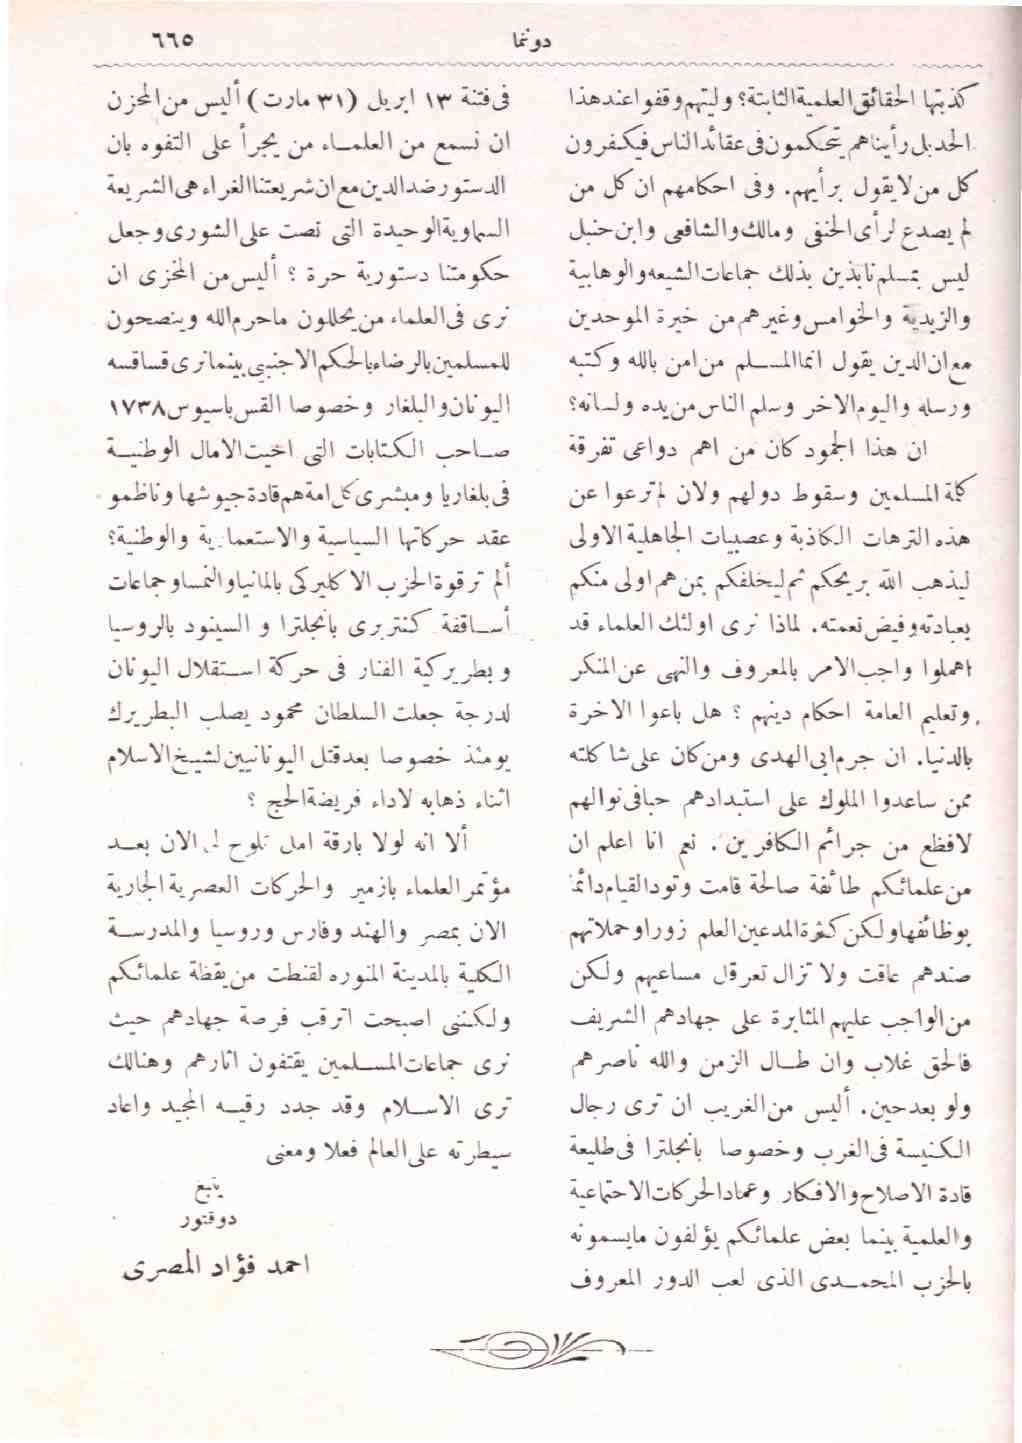 دونما
٦٦٥
كذبتها الحقائق العلمية الثابتة؟ وليتهم وقفوا عند هذا
الحد بل رأيناهم يتحكمون فى عقائد الناس فيكفرون
كل من لا يقول برأيهم. وفى احكامهم ان كل من
لم يصدع لرأى الحنفى ومالك والشافعى وابن حنبل
ليس بمسلم نابذين بذلك جماعات الشيعه والوهابية
والزيدية والخوامس وغيرهم من خيرة الموحدين
مع ان الدين يقول انما المسلم من امن بالله وكتبه
ورسله واليوم الاخر وسلم الناس من يده ولسانه؟
ان هذا الجمود كان من اهم دواعى تفرقة
كلمة المسلمين وسقوط دولهم ولان لم ترعوا عن
هذه الترهات الكاذبة وعصبيات الجاهلية الاولى
ليذهب الله بريحكم ثم ليخلفكم بمن هم اولى منكم
بعبادته وفيض نعمته. لماذا نرى اولئك العلماء قد
اهملوا واجب الامر بالمعروف والنهى عن المنكر
وتعليم العامة احكام دينهم ؟ هل باعوا الاخرة
بالدنيا. ان جرم ابى الهدى ومن كان على شاكلته
ممن ساعدوا الملوك على استبدادهم حبا فى نوالهم
لافظع من جرائم الكافرين. نعم انا اعلم ان
من علمائكم طائفة صالحة قامت وتود القيام دائما
بوظائفها ولكن كثرة المدعين العلم زورا وحملاتهم
ضدهم عاقت ولا تزال تعرقل مساعيهم ولكن
من الواجب عليهم المثابرة على جهادهم الشريف
فالحق غلاب وان طال الزمن والله ناصرهم
ولو بعد حين. أليس من الغريب ان ترى رجال
الكنيسة فى الغرب وخصوصا بانجلترا فى طليعة
قادة الاصلاح والافكار وعماد الحركات الاجتماعية
والعلمية بينما بعض علمائكم يؤلفون مايسمونه
بالحزب المحمدى الذى لعب الدور المعروف
فى فتنة ١٣ ابريل (٣١ مارت) أليس من المحزن
ان نسمع من العلماء من يجرأ على التفوه بان
الدستور ضد الدين مع ان شريعتنا الغراء هى الشريعة
السماوية الوحيدة التى نصت على الشورى وجعل
حكومتنا دستورية حرة ؟ أليس من المخزى ان
نرى فى العلماء من يحللون ماحرم الله وينصحون
للمسلمين بالرضاء بالحكم الاجنبى بينما نرى قساقسه
اليونان والبلغار وخصوصا القس باسيوس ١٧٣٨
صاحب الكتابات التى احيت الامال الوطنية
فى بلغاريا ومبشرى كل امة هم قادة جيوشها وناظمو
عقد حركاتها السياسية والاستعمارية والوطنية؟
ألم تر قوة الحزب الاكليركى بالمانيا والنمسا وجماعات
أساقفة كنتربرى بانجلترا و السينود بالروسيا
وبطريركية الفنار فى حركة استقلال اليونان
لدرجة جعلت السلطان محمود يصلب البطريرك
يومئذ خصوصا بعد قتل اليونانيين لشيخ الاسلام
اثناء ذهابه لاداء فريضة الحج ؟
ألا انه لولا بارقة امل تلوح لى الان بعد
مؤتمر العلماء بازمير والحركات العصرية الجارية
الان بمصر والهند وفارس وروسيا والمدرسة
الكلية بالمدينة المنوره لقنطت من يقظة علمائكم
ولكننى اصبحت اترقب فرصة جهادهم حيث
نرى جماعات المسلمين يقتفون اثارهم وهنالك
ترى الاسلام وقد جدد رقيه المجيد واعاد
سيطرته على العالم فعلا ومعنى
يتبع
دوقتور
احمد فؤاد المصرى